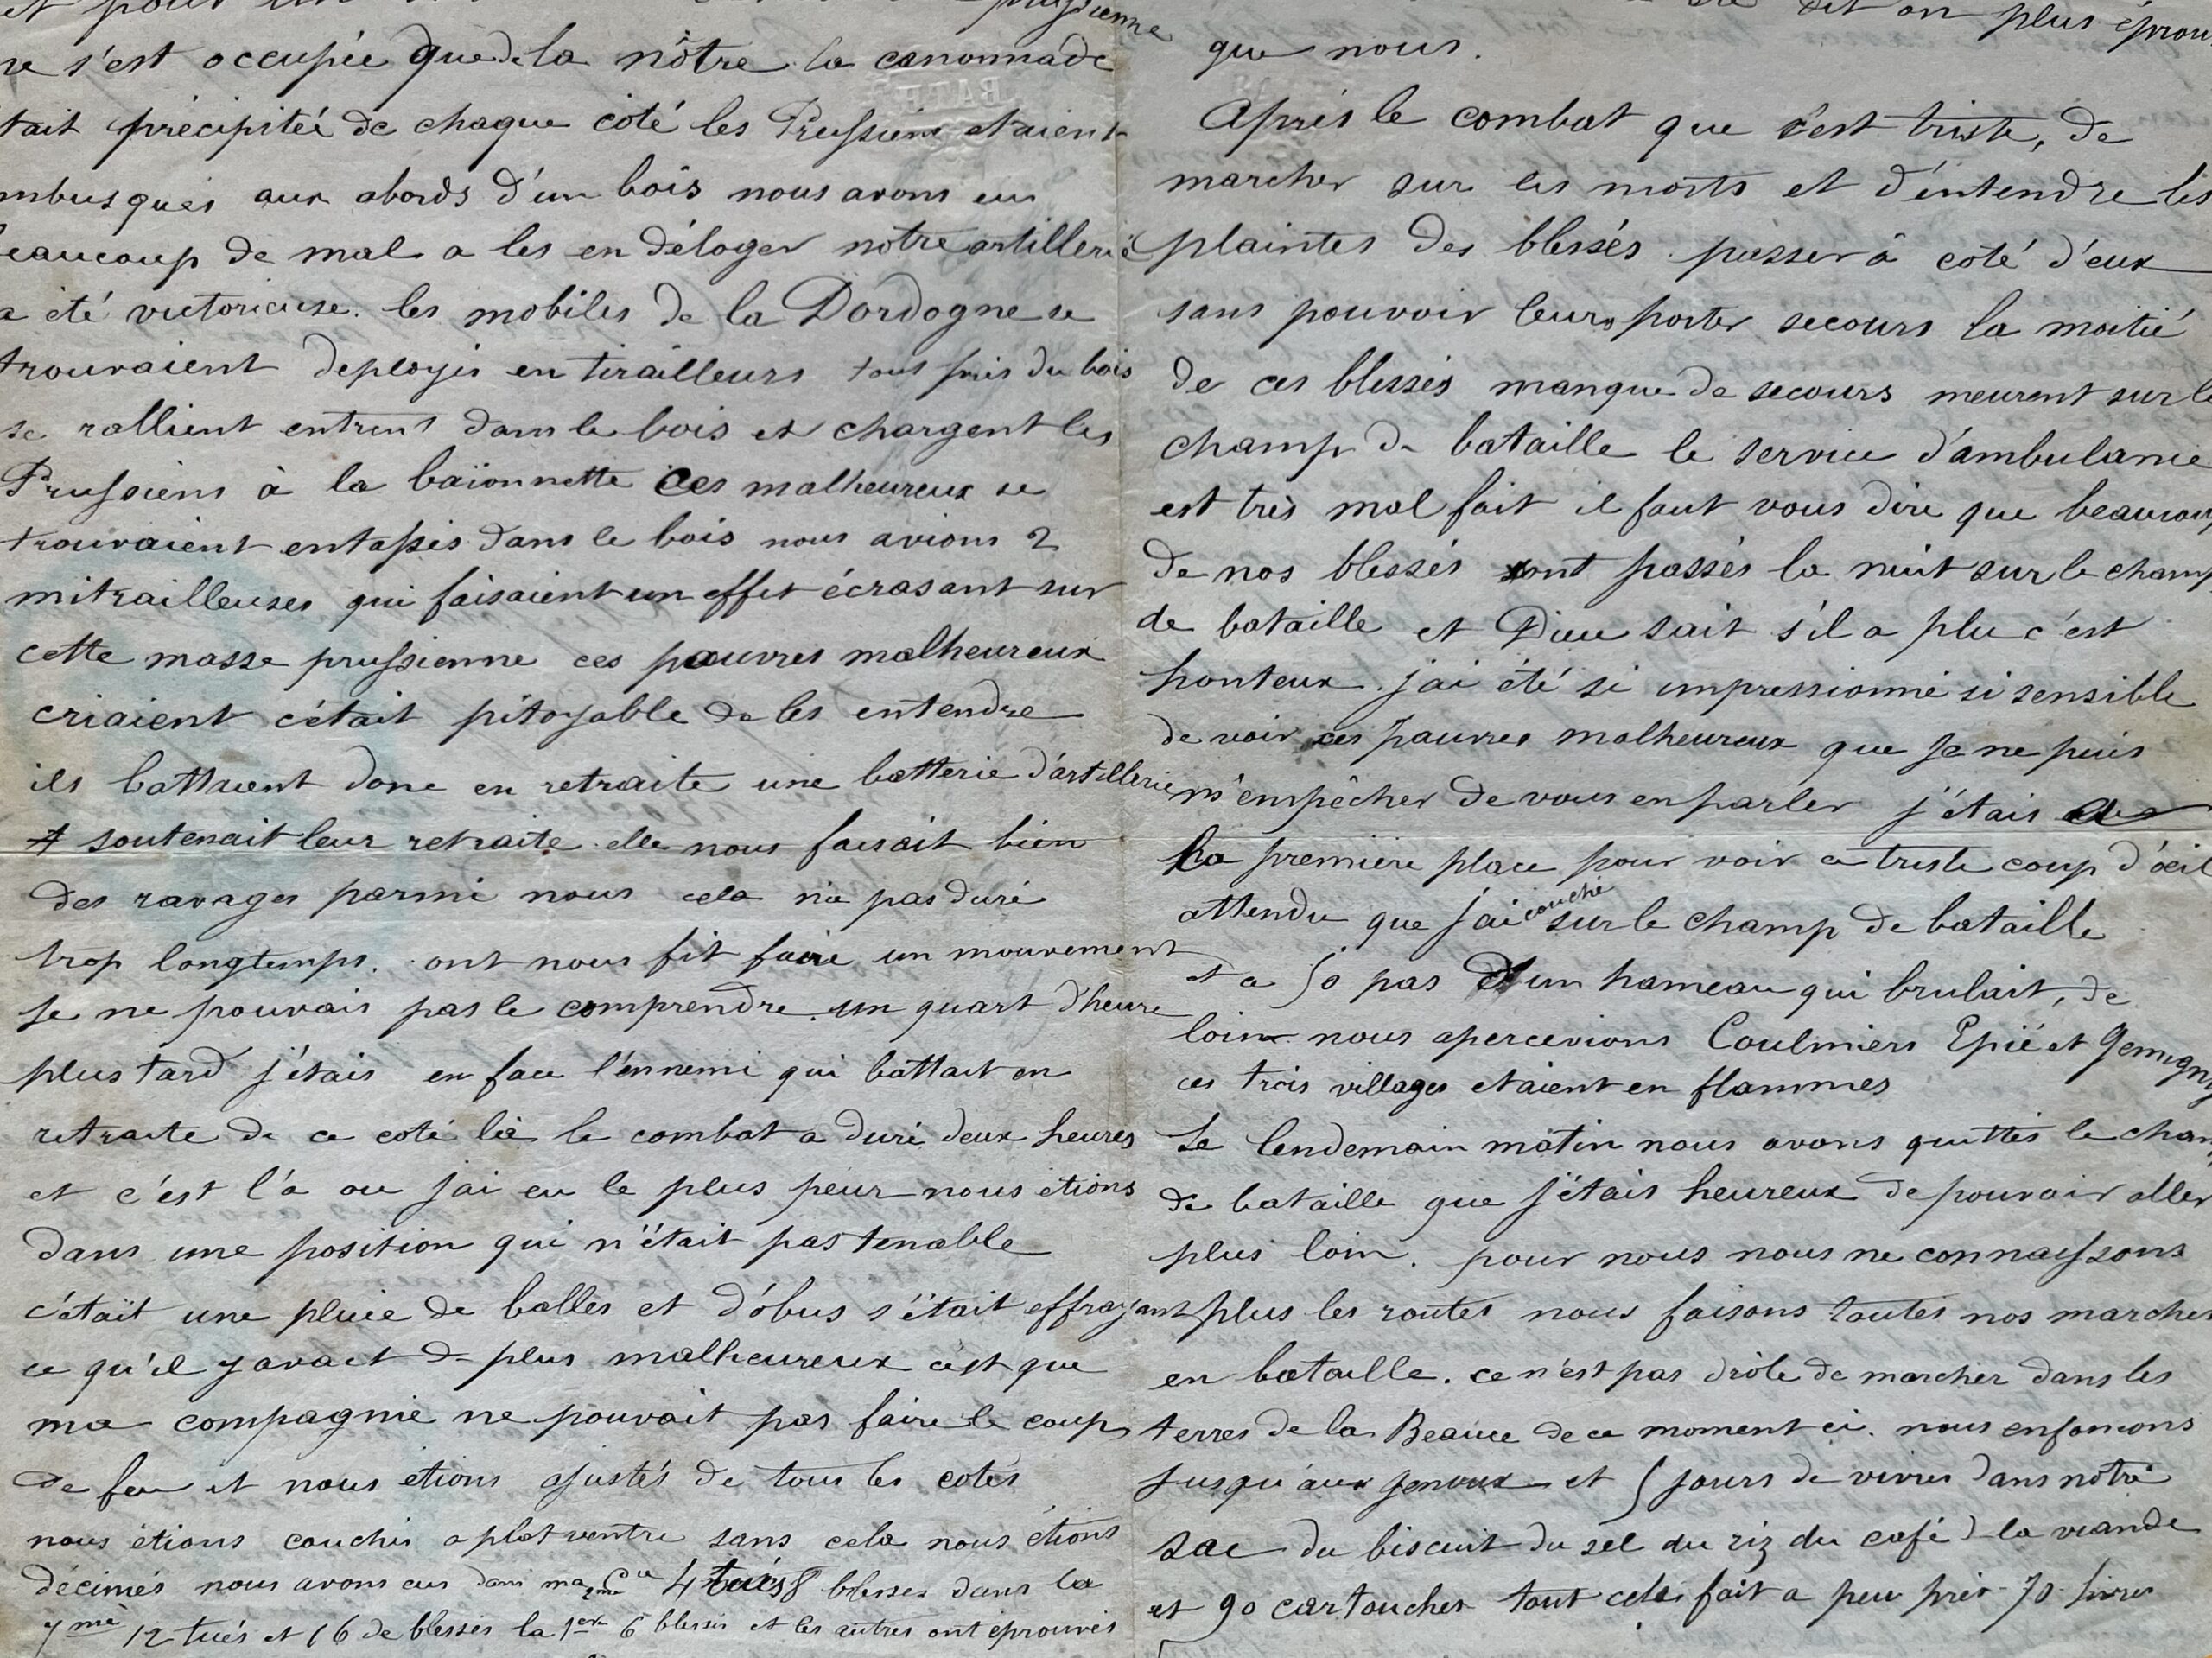 et pour un
prussienne
ne s'est occupée que de la nôtre la canonnade
tait précipiteé de chaque côté les Prussiens etaient
mbusqués aux abords d'un bois nous avons eu
eaucoup de mal a les en déloger notre artillerie
a été victorieuse. les mobiles de la Dordogne se
trouvaient deployés en tirailleurs tout près du bois
se rallient entrent dans le bois et chargent les
Prussiens à la baïonnette Ces malheureux se
trouvaient entassés dans le bois nous avions 2
mitrailleuses qui faisaient un effet écrasant sur
cette masse prussienne ces pauvres malheureux
criaient c'était pitoyable de les entendre
ils battaient donc en retraite une batterie d'artillerie
soutenait leur retraite elle nous faisait bien
des ravages parmi nous cela n'a pas duré
trop longtemps. ont nous fit faire un mouvement
je ne pouvais pas le comprendre. un quart d'heure
plus tard j'étais en face l'énnemi qui battait en
retraite de ce coté là le combat a duré deux heures
et c'est l'a ou j'ai eu le plus peur nous étions
dans une position qui n'était pas tenable
c'était une pluie de balles et d'óbus s'était effrayant
ce qu'il y avait de plus malheureux c'est que
ma compagnie ne pouvait pas faire le coup
de feu et nous etions ajustés de tous les cotés
nous étions couchés a plat ventre sans cela nous étions
décimés nous avons eus dans ma 2me Cie 4 tués 8 blessés dans la
7me 12 tués et 16 de blessés la 1ere 6 blessés et les autres ont éprouvés
dit on plus éprou
que nous.
Après le combat que c'est triste, de
marcher sur les morts et d'éntendre les
plaintes des blessés passer â coté d'eux
sans pouvoir leurs porter secours la moitié
de ces blessés manque de secours meurent sur le
champ de bataille le service d'ambulance
est très mal fait il faut vous dire que beaucoup
de nos blessés sont passés la nuit sur le champ
de bataille et Dieu sait s'il a plu c'est
honteux. j'ai été si impressionné si sensible
de voir ces pauvres malheureux que je ne puis
m'empêcher de vous en parler j'étais a
la première place pour voir ce triste coup d'œil
attendu que j'ai couché sur le champ de bataille
et a 50 pas d'un hameau qui brulait, de
loin nous apercevions Coulmiers Epié et Gemigny
ces trois villages etaient en flammes
Le lendemain matin nous avons quittés le cham
de bataille que j'étais heureux de pouvoir aller
plus loin. pour nous nous ne connaissons
plus les routes nous faisons toutes nos marches
en bataille. ce n'est pas drôle de marcher dans les
terres de la Beauce de ce moment ci. nous enfoncions
jusqu'aux genoux et 5 jours de vivres dans notre
sac du biscuit du sel du riz du café de la viande
et 90 cartouches tout cela fait a peu près 70 livres